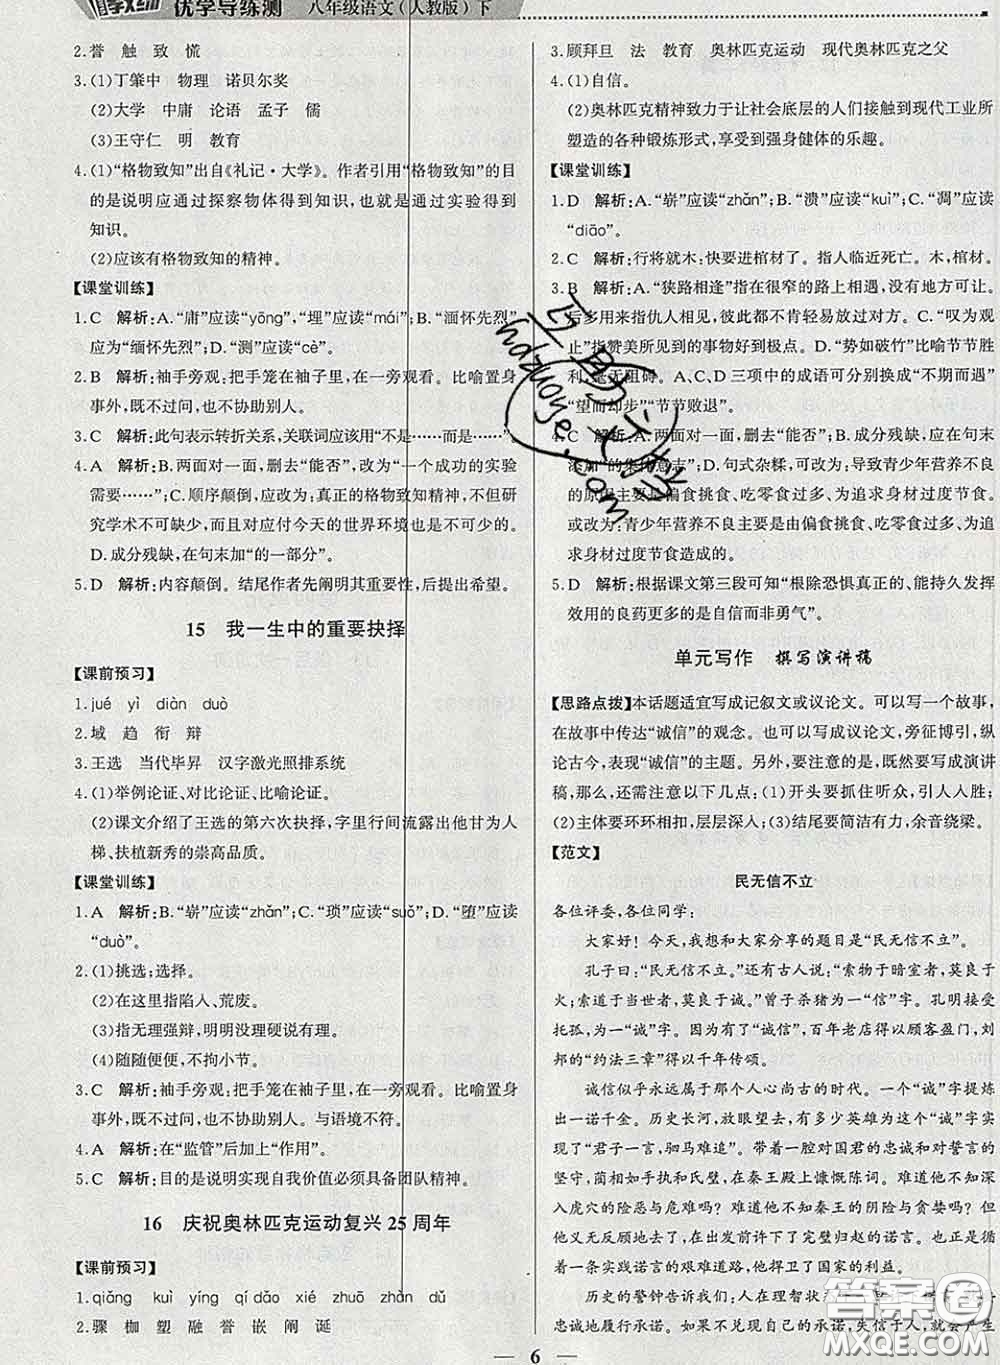 自学教练 优学导练测 八年级语文(人教版)下
2.誉 触 致 慌
3.(1)丁肇中 物理 诺贝尔奖
(2)大学 中庸 论语 孟子 儒
(3)王守仁 明 教育
4.(1)“格物致知”出自《礼记·大学》。作者引用“格物致知”
的目的是说明应通过探察物体得到知识,也就是通过实验得到
知识。
(2)应该有格物致知的精神。
【课堂训练】
1.C 解析:A.“庸”应读“yōng”,“埋”应读“mái”;B.“湎怀先烈”
应为“缅怀先烈”;D.“测”应读“cè”。
2.B 解析:袖手旁观:把手笼在袖子里,在一旁观看。比喻置身
事外,既不过问,也不协助别人。
3.C 解析:此句表示转折关系,关联词应该用“不是……而是……”。
4.A 解析:B.两面对一面,删去“能否”,改为“一个成功的实验
需要……”;C.顺序颠倒,应改为:真正的格物致知精神,不但研
究学术不可缺少,而且对应付今天的世界环境也是不可少的。
D.成分残缺,在句末加“的一部分”。
5.D 解析:内容颠倒。结尾作者先阐明其重要性,后提出希望。
15 我一生中的重要抉择
【课前预习】
1.jué yì diàn duò
2.域 趋 衔 辩
3.王选 当代毕昇 汉字激光照排系统
4.(1)举例论证、对比论证、比喻论证。
(2)课文介绍了王选的第六次抉择,字里行间流露出他甘为人
梯、扶植新秀的崇高品质。
【课堂训练】
1.A 解析:B.“崭”应读“zhǎn”;C.“琐”应读“suǒ”;D.“堕”应读
“duò”。
2.(1)挑选;选择。
(2)在这里指陷入、荒废。
(3)指无理强辩,明明没理硬说有理。
(4)随随便便,不拘小节。
3.C 解析:袖手旁观:把手笼在袖子里,在一旁观看。比喻置身
事外,既不过问,也不协助别人。与语境不符。
4.A 解析:在“监管”后加上“作用”。
5.C 解析:目的是说明实现自我价值必须具备团队精神。
16 庆祝奥林匹克运动复兴25周年
【课前预习】
1.qiǎng kuì yíng qí dǎo xié zhuō zhǎn dǔ
2.骤 枷 塑 融 誉 嵌 阐 诞
3.顾拜旦 法 教育 奥林匹克运动 现代奥林匹克之父
4.(1)自信。
(2)奥林匹克精神致力于让社会底层的人们接触到现代工业所
塑造的各种锻炼形式,享受到强身健体的乐趣。
【课堂训练】
1.D 解析:A.“崭”应读“zhǎn”;B.“溃”应读“kuì”;C.“凋”应读
“diāo”。
2.C 解析:行将就木:快要进棺材了。指人临近死亡。木,棺材。
3.B 解析:A.“狭路相逢”指在很窄的路上相遇,没有地方可让。
后多用来指仇人相见,彼此都不肯轻易放过对方。C.“叹为观
止”指赞美所见到的事物好到极点。D.“势如破竹”比喻节节胜
利,毫无阻碍。A、C、D三项中的成语可分别换成“不期而遇”
“望而却步”“节节败退”。
4.C 解析:A.两面对一面,删去“能否”;B.成分残缺,应在句末
添加“的集体意志”;D.句式杂糅,可改为:导致青少年营养不良
的原因主要是偏食挑食、吃零食过多、为追求身材过度节食。
或改为:青少年营养不良主要是由偏食挑食、吃零食过多、为追
求身材过度节食造成的。
5.D 解析:根据课文第三段可知“根除恐惧真正的、能持久发挥
效用的良药更多的是自信而非勇气”。
单元写作 撰写演讲稿
【思路点拨】本话题适宜写成记叙文或议论文。可以写一个故事,
在故事中传达“诚信”的观念。也可以写成议论文,旁征博引,纵
论古今,表现“诚信”的主题。另外,要注意的是,既然要写成演讲
稿,还需注意以下几点:(1)开头要抓住听众,引人入胜;
(2)主体要环环相扣,层层深入;(3)结尾要简洁有力,余音绕梁。
【范文】
民无信不立
各位评委,各位同学:
大家好!今天,我想和大家分享的题目是“民无信不立”。
孔子曰:“民无信不立。”还有古人说:“索物于暗室者,莫良于
火;索道于当世者,莫良于诚。”曾子杀猪为一“信”字。孔明接受
托孤,为一“诚”字。因为有了“诚信”,百年老店得以顾客盈门,刘
邦的“约法三章”得以千年传颂。
诚信似乎永远属于那个人心尚古的时代。一个“诚”字提炼
出一诺千金。历史长河,放眼望去,有多少英雄为一个“诚”字实
现了“君子一言,驷马难追”。带着一份对国君的忠诚和对誓言的
执着,蔺相如手执和氏璧,在秦王殿上慷慨陈词。难道他不知深入
虎穴的险恶与危难吗?难道他不知秦王的阴险与贪婪吗?他
无怨无悔、义无反顾地去了,实现了完璧归赵的诺言。他只是像
一条实践诺言的艰难道路,他捍卫了国家的利益。
历史的警钟告诉我们:人在理智状
忠诚地履行承诺。然而,太多的承诺会
6